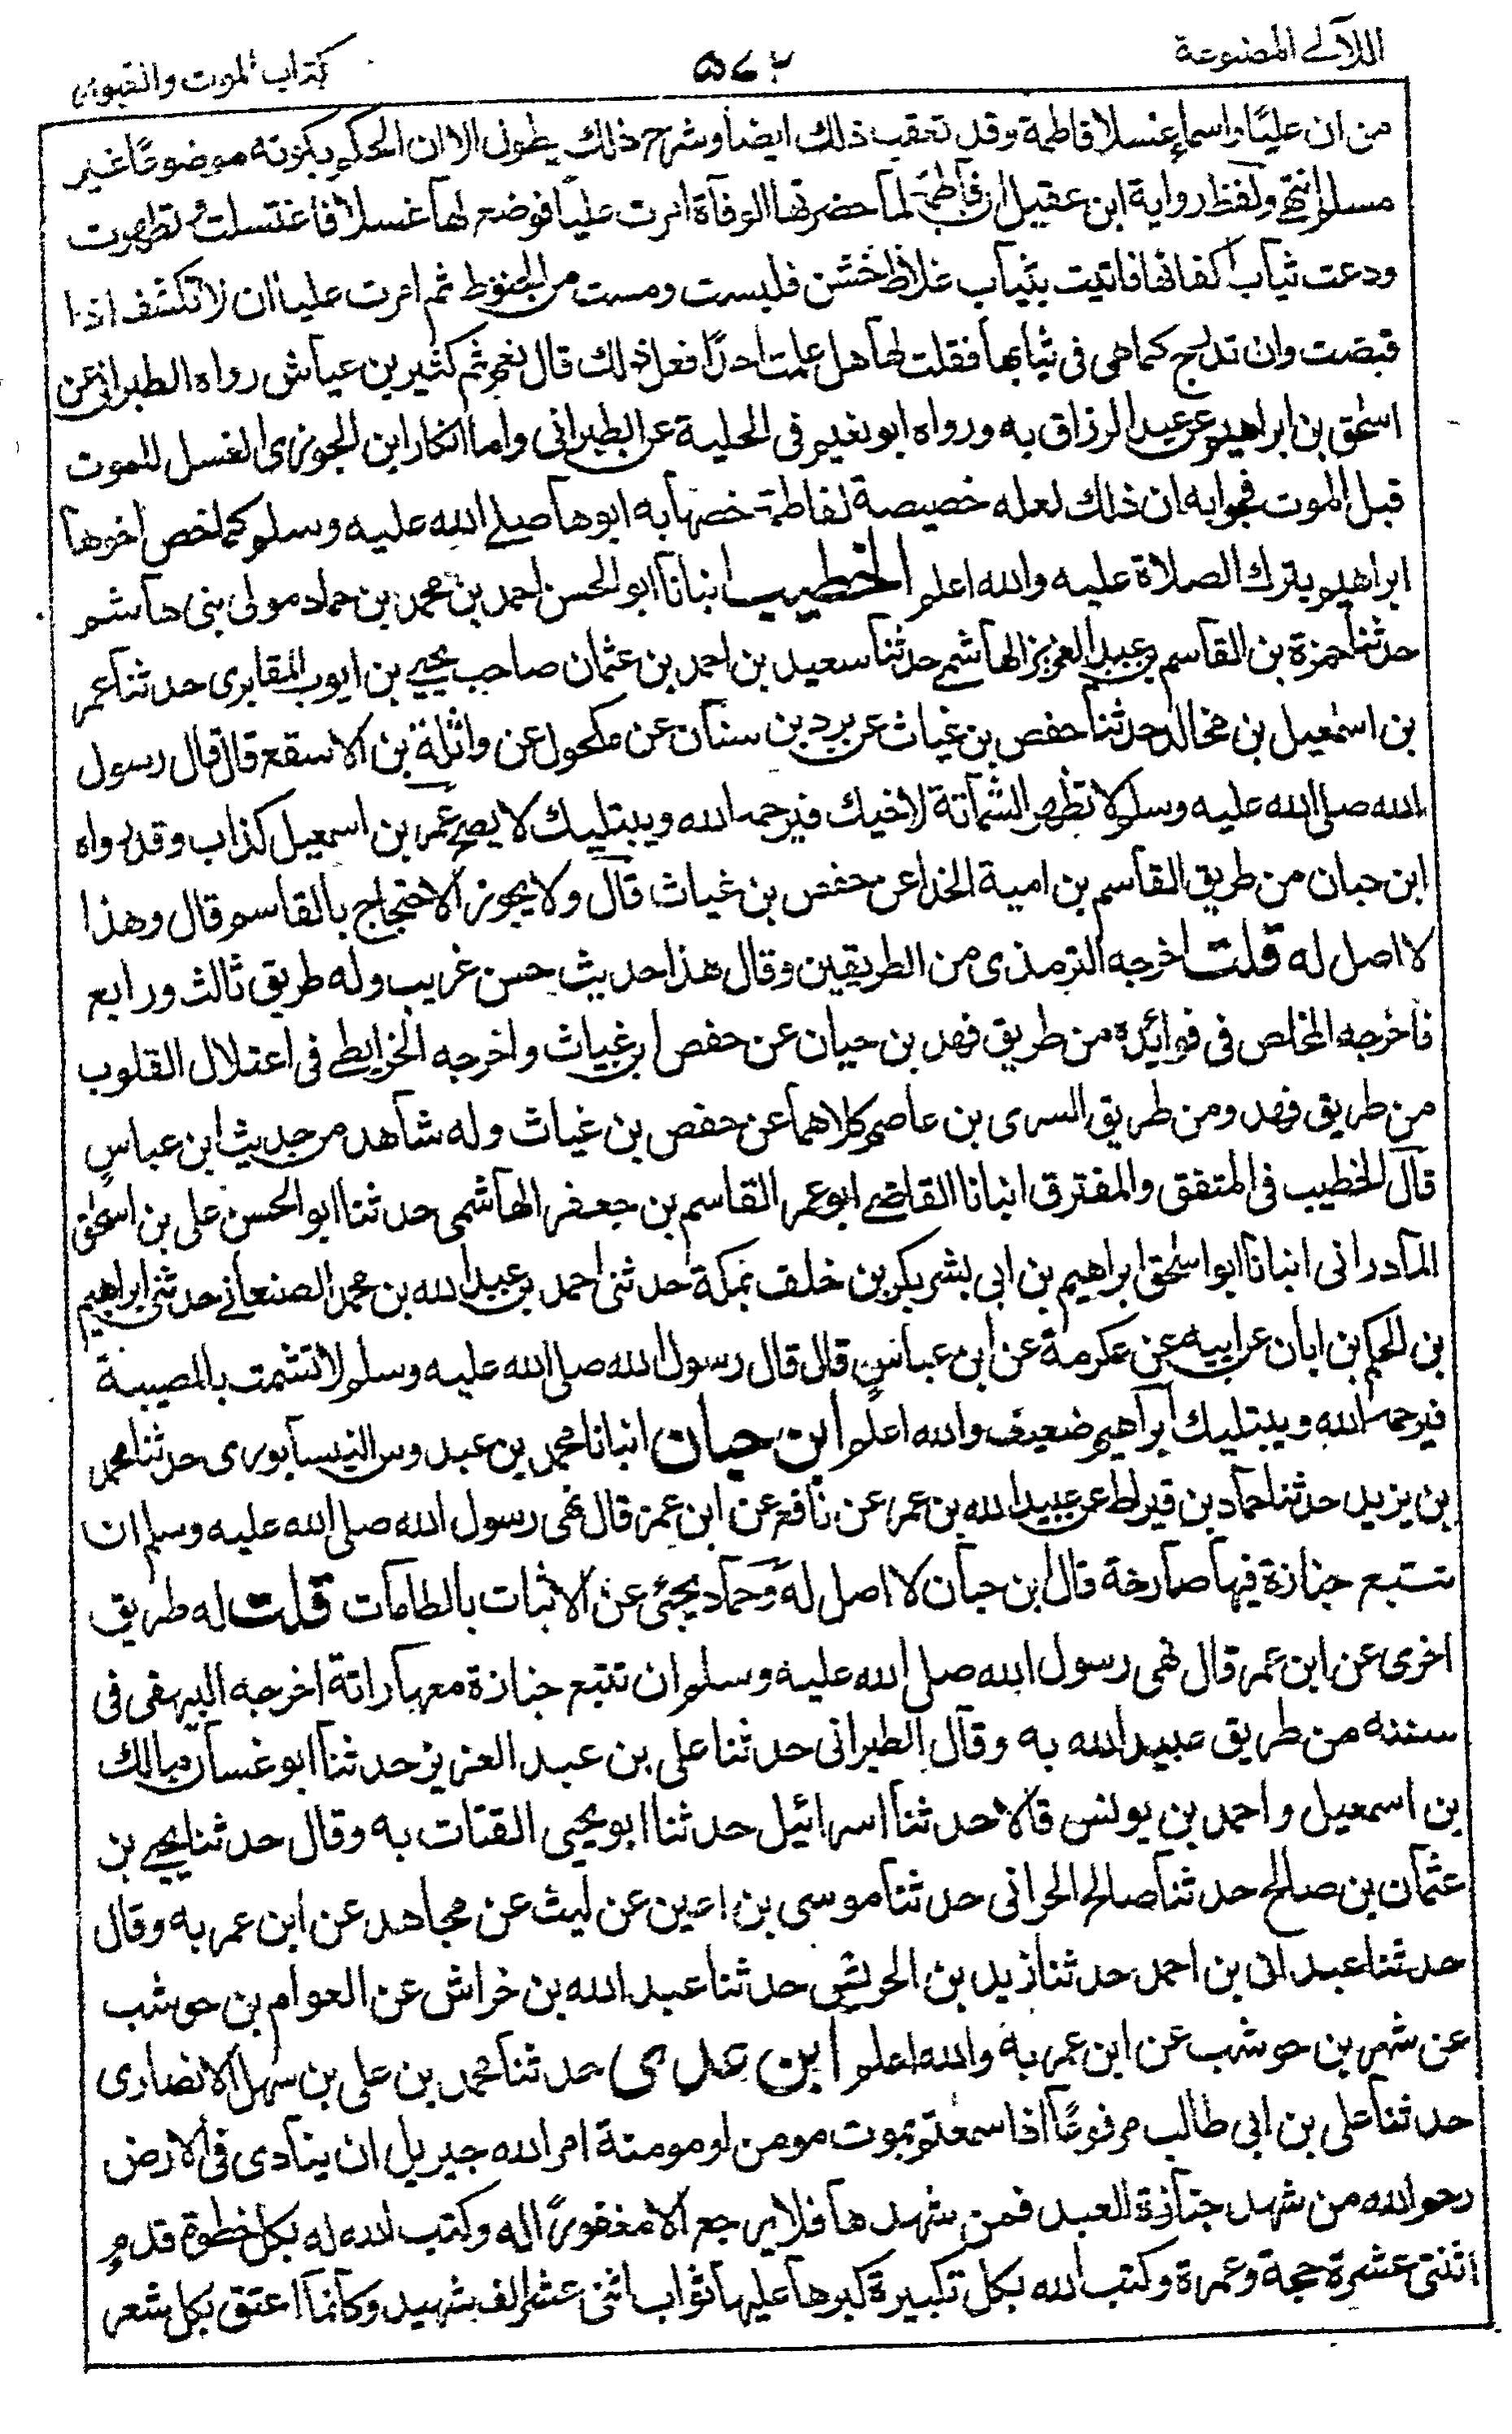 اللآلى المصنوعة
٥٤٢
كتاب الموت والقبور
من ان عليا واسماء غسلا فاطمة وقد تعقب ذلك ايضا وشرح ذلك يطول الا ان الحكم بكونه موضوعا غير
مسلم انتهى ولفظ رواية ابن عقيل ان فاطمة لما حضرتها الوفاة امرت عليا فوضع لها غسلا فاغتسلت وتطهرت
ودعت ثياب اكفانها فاتيت بثياب غلاظ خشن فلبست ومست من الحنوط ثم امرت عليا ان لا تكشف اذا
قبضت وان تدرج كما هى فى ثيابها فقلت لها هل علمت احدا فعل ذلك قال نعم ثم كثير بن عياش رواه الطبرانى عن
اسحق بن ابراهيم عن عبد الرزاق به ورواه ابو نعيم فى الحلية عن الطبرانى واما انكار ابن الجوزى الغسل للموت
قبل الموت فجوابه ان ذلك لعله خصيصة لفاطمة خصها به ابوها صلى الله عليه وسلم كما خص اخوها
ابراهيم بترك الصلاة عليه والله اعلم الخطيب انبانا ابو الحسن احمد بن محمد بن حماد مولى بنى هاشم
حدثنا حمزة بن القاسم بن عبد العزيز الهاشمى حدثنا سعيد بن احمد بن عثمان صاحب يحيى بن ايوب المقابرى حدثنا عمر
بن اسمعيل بن مخالد حدثنا حفص بن غياث عن برد بن سنان عن مكحول عن واثلة بن الاسقع قال قال رسول
الله صلى الله عليه وسلم لا تظهر الشماتة لاخيك فيرحمه الله ويبتليك لا يصح عمر بن اسمعيل كذاب وقد رواه
ابن حبان من طريق القاسم بن امية الحذا عن حفص بن غياث قال ولا يجوز الاحتجاج بالقاسم قال وهذا
لا اصل له قلت اخرجه الترمذى من الطريقين وقال هذا حديث حسن غريب وله طريق ثالث ورابع
فاخرجه المخلص فى فوائده من طريق فهد بن حيان عن حفص ابن غياث واخرجه الخرايطى فى اعتلال القلوب
من طريق فهد ومن طريق السرى بن عاصم كلاهما عن حفص بن غياث وله شاهد من حديث ابن عباس
قال الخطيب فى المتفق والمفترق انبانا القاضى ابو عمر القاسم بن جعفر الهاشمى حدثنا ابو الحسن على بن اسحق
المادرانى انبانا ابو اسحق ابراهيم بن ابى بشر بكر بن خلف بمكة حدثنى احمد بن عبيد الله بن محمد الصنعانى حدثنى ابراهيم
بن الحكم بن ابان عن ابيه عن عكرمة عن ابن عباس قال قال رسول الله صلى الله عليه وسلم لا تشمت بالمصيبة
فيرحمه الله ويبتليك ابراهيم ضعيف والله اعلم ابن حبان انبانا محمد بن عبدوس النيسابورى حدثنا محمد
بن يزيد حدثنا حماد بن قيراط عن عبيد الله بن عمر عن نافع عن ابن عمر قال نهى رسول الله صلى الله عليه وسلم ان
تتبع جنازة فيها صارخة قال ابن حبان لا اصل له وحماد يجئ عن الاثبات بالطامات قلت له طريق
اخرى عن ابن عمر قال نهى رسول الله صلى الله عليه وسلم ان تتبع جنازة معها رانة اخرجه البيهقى فى
سننه من طريق عبيد الله به وقال الطبرانى حدثنا على بن عبد العزيز حدثنا ابو غسان مالك
بن اسمعيل واحمد بن يونس قالا حدثنا اسرائيل حدثنا ابو يحيى القتات به وقال حدثنا يحيى بن
عثمان بن صالح حدثنا صالح الحرانى حدثنا موسى بن اعين عن ليث عن مجاهد عن ابن عمر به وقال
حدثنا عبدان بن احمد حدثنا زيد بن الحريش حدثنا عبد الله بن خراش عن العوام بن حوشب
عن شهر بن حوشب عن ابن عمر به والله اعلم ابن عدى حدثنا محمد بن على بن سهل الانصارى
حدثنا على بن ابى طالب مرفوعا اذا سمعتم بموت مومن او مومنة امر الله جبريل ان ينادى فى الارض
رحم الله من شهد جنازة العبد فمن شهدها فلا يرجع الا مغفورا اله وكتب الله له بكل خطوة قدم
اثنتى عشرة حجة وعمرة وكتب الله بكل تكبيرة كبرها عليها ثواب اثنى عشر الف شهيد وكانما اعتق بكل شعر